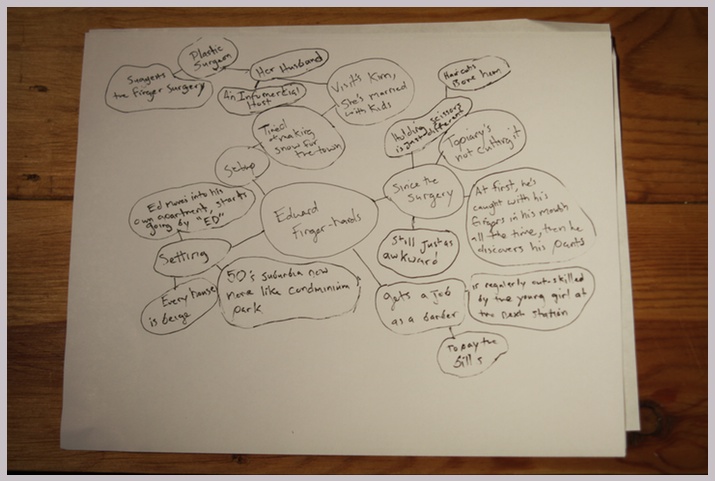 Plastic
Surgeon
Suggests
the Finger Surgery
Her Husband
An Infomercial
Host
Visits Kim,
She's married
with kids
Tired
of making
snow for
the town
Setup
Haircuts
Bore him
Holding scissors
is just different
Topiary's
not cutting it
Since the
Surgery
At first, he's
caught with his
fingers in his mouth
all the time, then he
discovers his pants
Still Just as
awkward
Ed moves into his
own apartment, starts
going by "ED"
Setting
Every house
is beige
50's suburbia now
more like condminium
park
Edward
Finger-hands
gets a job
as a barber
is regularly outskilled
by the young girl at
the next station
To pay the
Bills